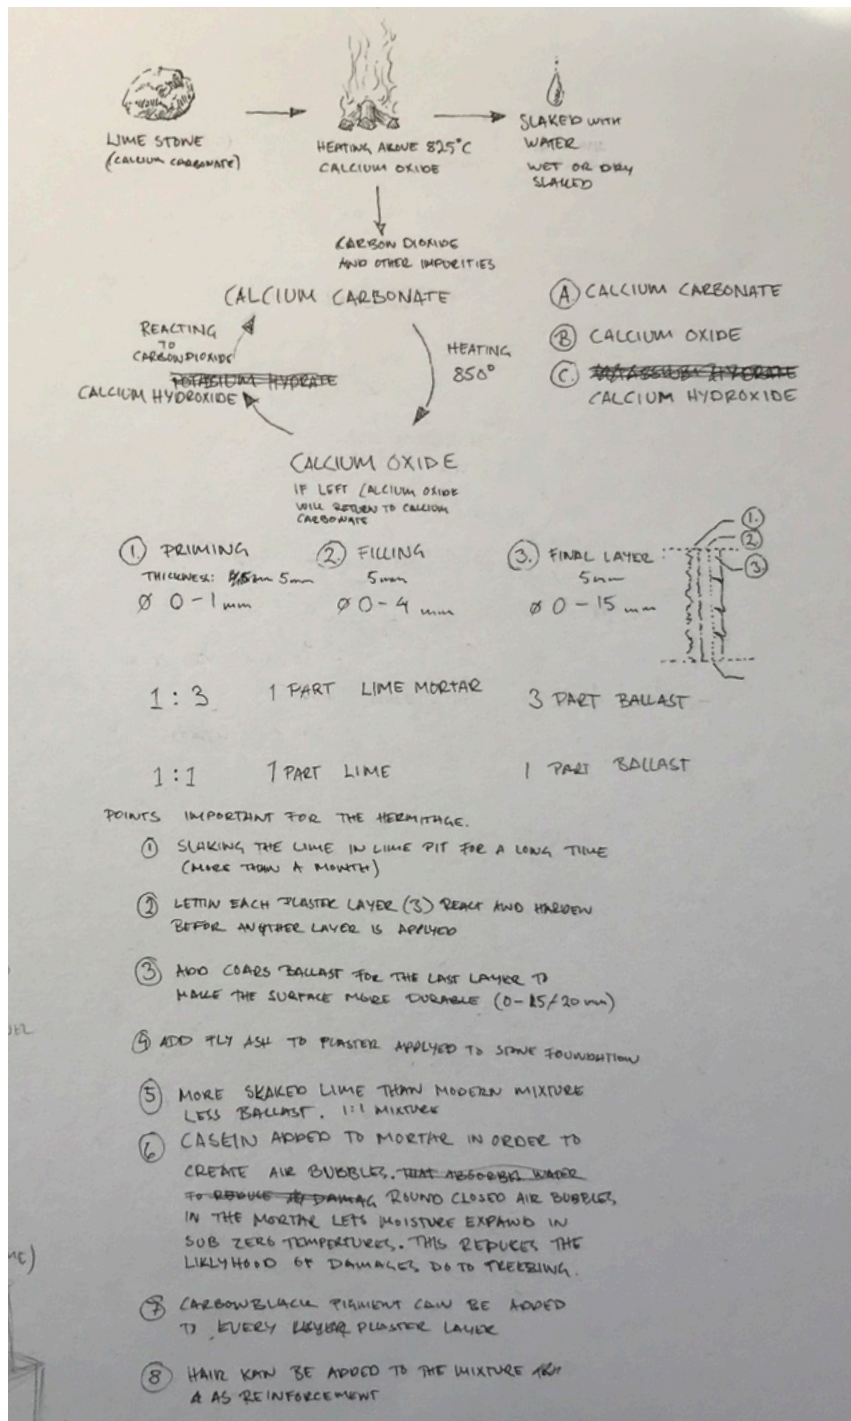 LIME STONE
(CALCIUM CARBONATE)
HEATING ABOVE 825°C
CALCIUM OXIDE
SLAKED WITH
WATER
WET OR DRY
SLAKED
CARBON DIOXIDE
AND OTHER IMPURITIES
CALCIUM CARBONATE
REACTING
TO
CARBONDIOXIDE
POTASIUM HYDRATE
CALCIUM HYDROXIDE
HEATING
850°
CALCIUM OXIDE
IF LEFT CALCIUM OXIDE
WILL RETURN TO CALCIUM
CARBONATE
A CALCIUM CARBONATE
B CALCIUM OXIDE
C.
CALCIUM HYDROXIDE
1 PRIMING
THICKNESS: 5mm
Ø 0-1 mm
2. FILLING
5mm
Ø 0-4 mm
3. FINAL LAYER:
5mm
Ø 0-15 mm
1.
2.
3.
1:3 1 PART LIME MORTAR 3 PART BALLAST
1:1 1 PART LIME 1 PART BALLAST
POINTS IMPORTANT FOR THE HERMITAGE.
1 SLAKING THE LIME IN LIME PIT FOR A LONG TIME
(MORE THAN A MONTH)
2 LETTIN EACH PLASTER LAYER (3) REACT AND HARDEN
BEFOR ANOTHER LAYER IS APPLYED
3 ADD COARS BALLAST FOR THE LAST LAYER TO
MAKE THE SURFACE MORE DURABLE (0-15/20 mm)
4 ADD FLY ASH TO PLASTER APPLYED TO STONE FOUNDATION
5 MORE SKAKED LIME THAN MODERN MIXTURE
LESS BALLAST. 1:1 MIXTURE
6 CASEIN ADDED TO MORTAR IN ORDER TO
CREATE AIR BUBBLES. THAT ABSORBES WATER
TO REDUCE DAMAG ROUND CLOSED AIR BUBBLES
IN THE MORTAR LETS MOISTURE EXPAND IN
SUB ZERO TEMPERTURES. THIS REDUCES THE
LIKLYHOOD OF DAMAGES DO TO FREEZING.
7 CARBONBLACK PIGMENT CAN BE ADDED
TO EVERY PLASTER LAYER
8 HAIR KAN BE ADDED TO THE MIXTURE
AS REINFORCEMENT